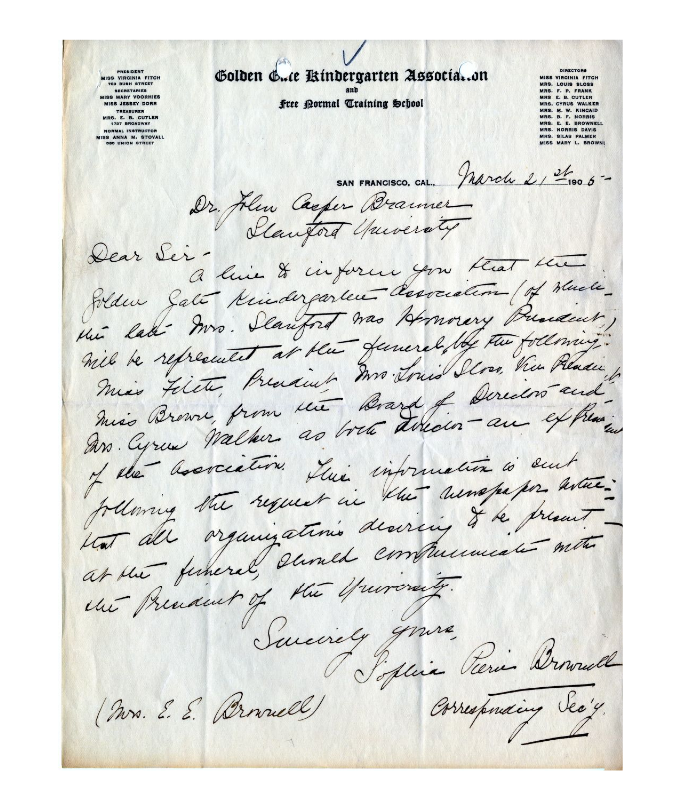 PRESIDENT
MISS VIRGINIA FITCH
BUSH STREET
SECRETARIES
MISS MARY VOORHIES
MISS JESSEY DORR
TREASURER
MRS. E. B. CUTLER
1737 BROADWAY
NORMAL INSTRUCTOR
MISS ANNA M. STOVALL
UNION STREET
Golden Gate Kindergarten Association
and
Free Normal Training School
DIRECTORS
MISS VIRGINIA FITCH
MRS. LOUIS SLOSS
MRS. F. P. FRANK
MRS. E. B. CUTLER
MRS. CYRUS WALKER
MRS. M. W. KINCAID
MRS. B. F. NORRIS
MRS. E. E. BROWNELL
MRS. HORRIS DAVIS
MRS. SILAS PALMER
MISS MARY L. BROWN
SAN FRANCISCO, CAL., March 21st 1905-
Dr. John Casper Branner
Stanford University
Dear Sir-
A line to inform you that the
Golden Gate Kindergarten Association (of which
the late Mrs. Stanford was Honorary President,)
will be represented at the funeral, by the following:
Miss Fitch, President, Mrs. Louis Sloss, Vice President
Miss Brown, from the Board of Directors and
Mrs. Cyrus Walker as both Director an ex President
of the Association. This information is sent
following the request in the newspaper notice:
that all organizations desiring to be present
at the funeral, should communicate with
the President of the University.
Sincerely yours,
Sophia Pierce Brownell
(Mrs. E. E. Brownell) Corresponding Sec'y.